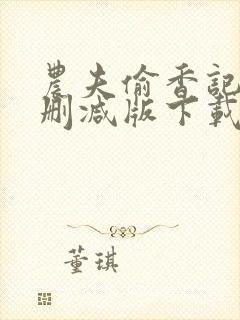 農夫偷香記
刪減版下載
董琪